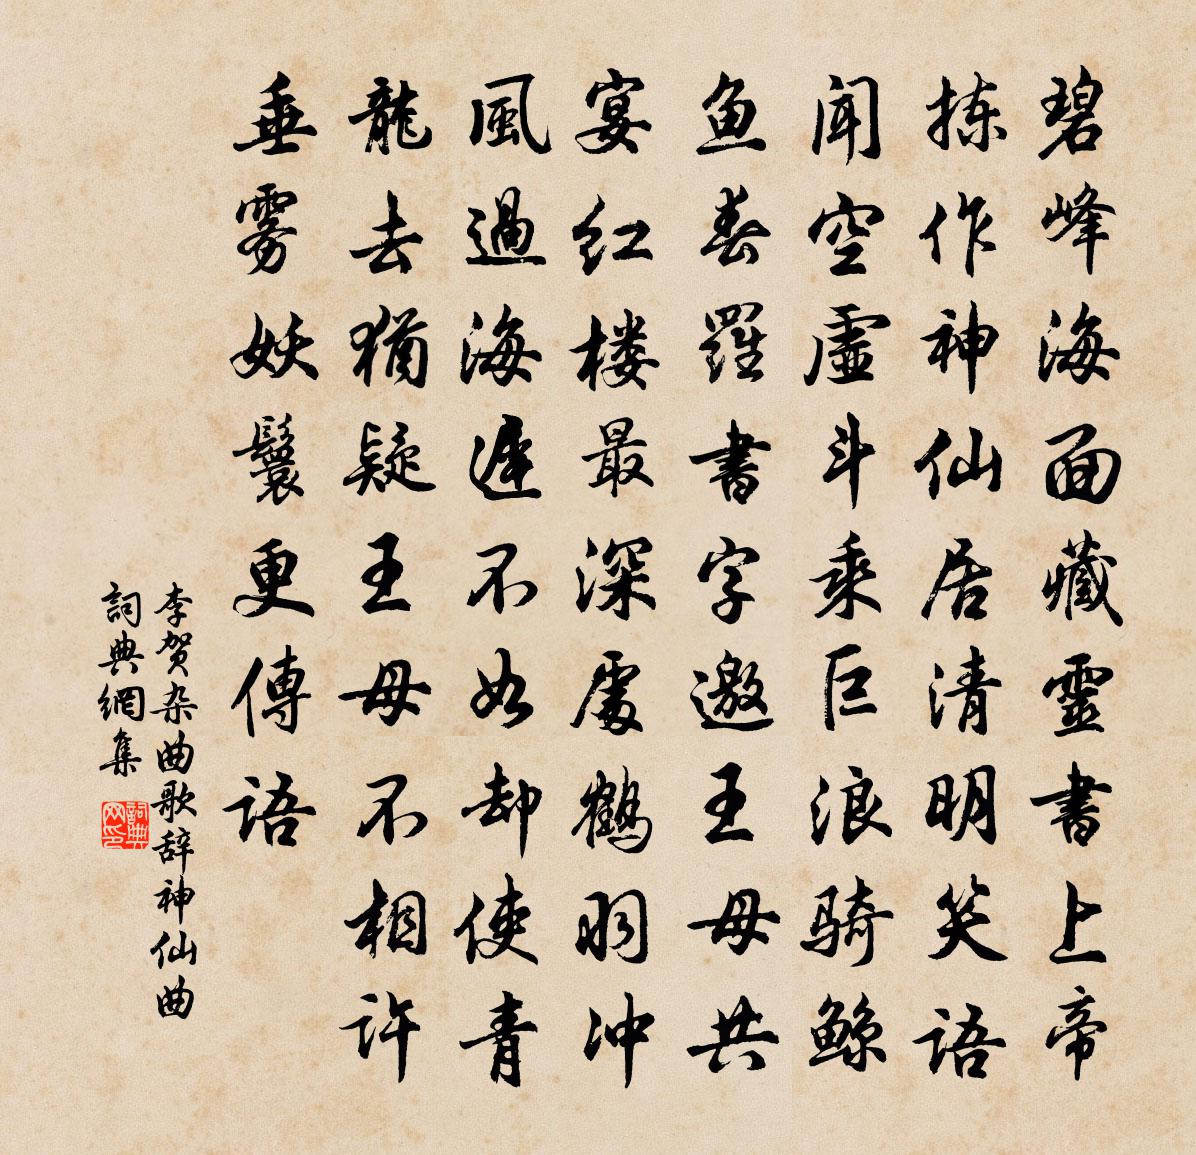 碧峰海面藏靈書上帝
拣作神仙居清明笑語
闻空虛斗乘巨浪骑鲸
鱼春羅書字邀王母共
宴红楼最深處鶴羽冲
風過海遲不如却使青
龍去猶疑王母不相許
垂雾妖鬟更傳語
李贺杂曲歌辞神仙曲
詞典網集